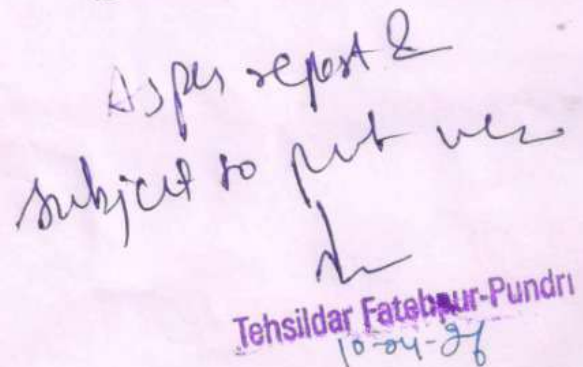 As per report &
subject to
Tehsildar Fatehpur-Pundri
10-04-26